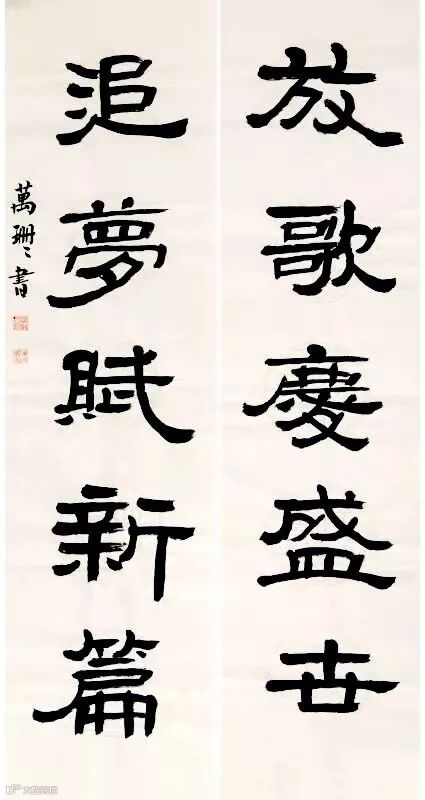 放歌慶盛世
追夢賦新篇
萬珊〻書